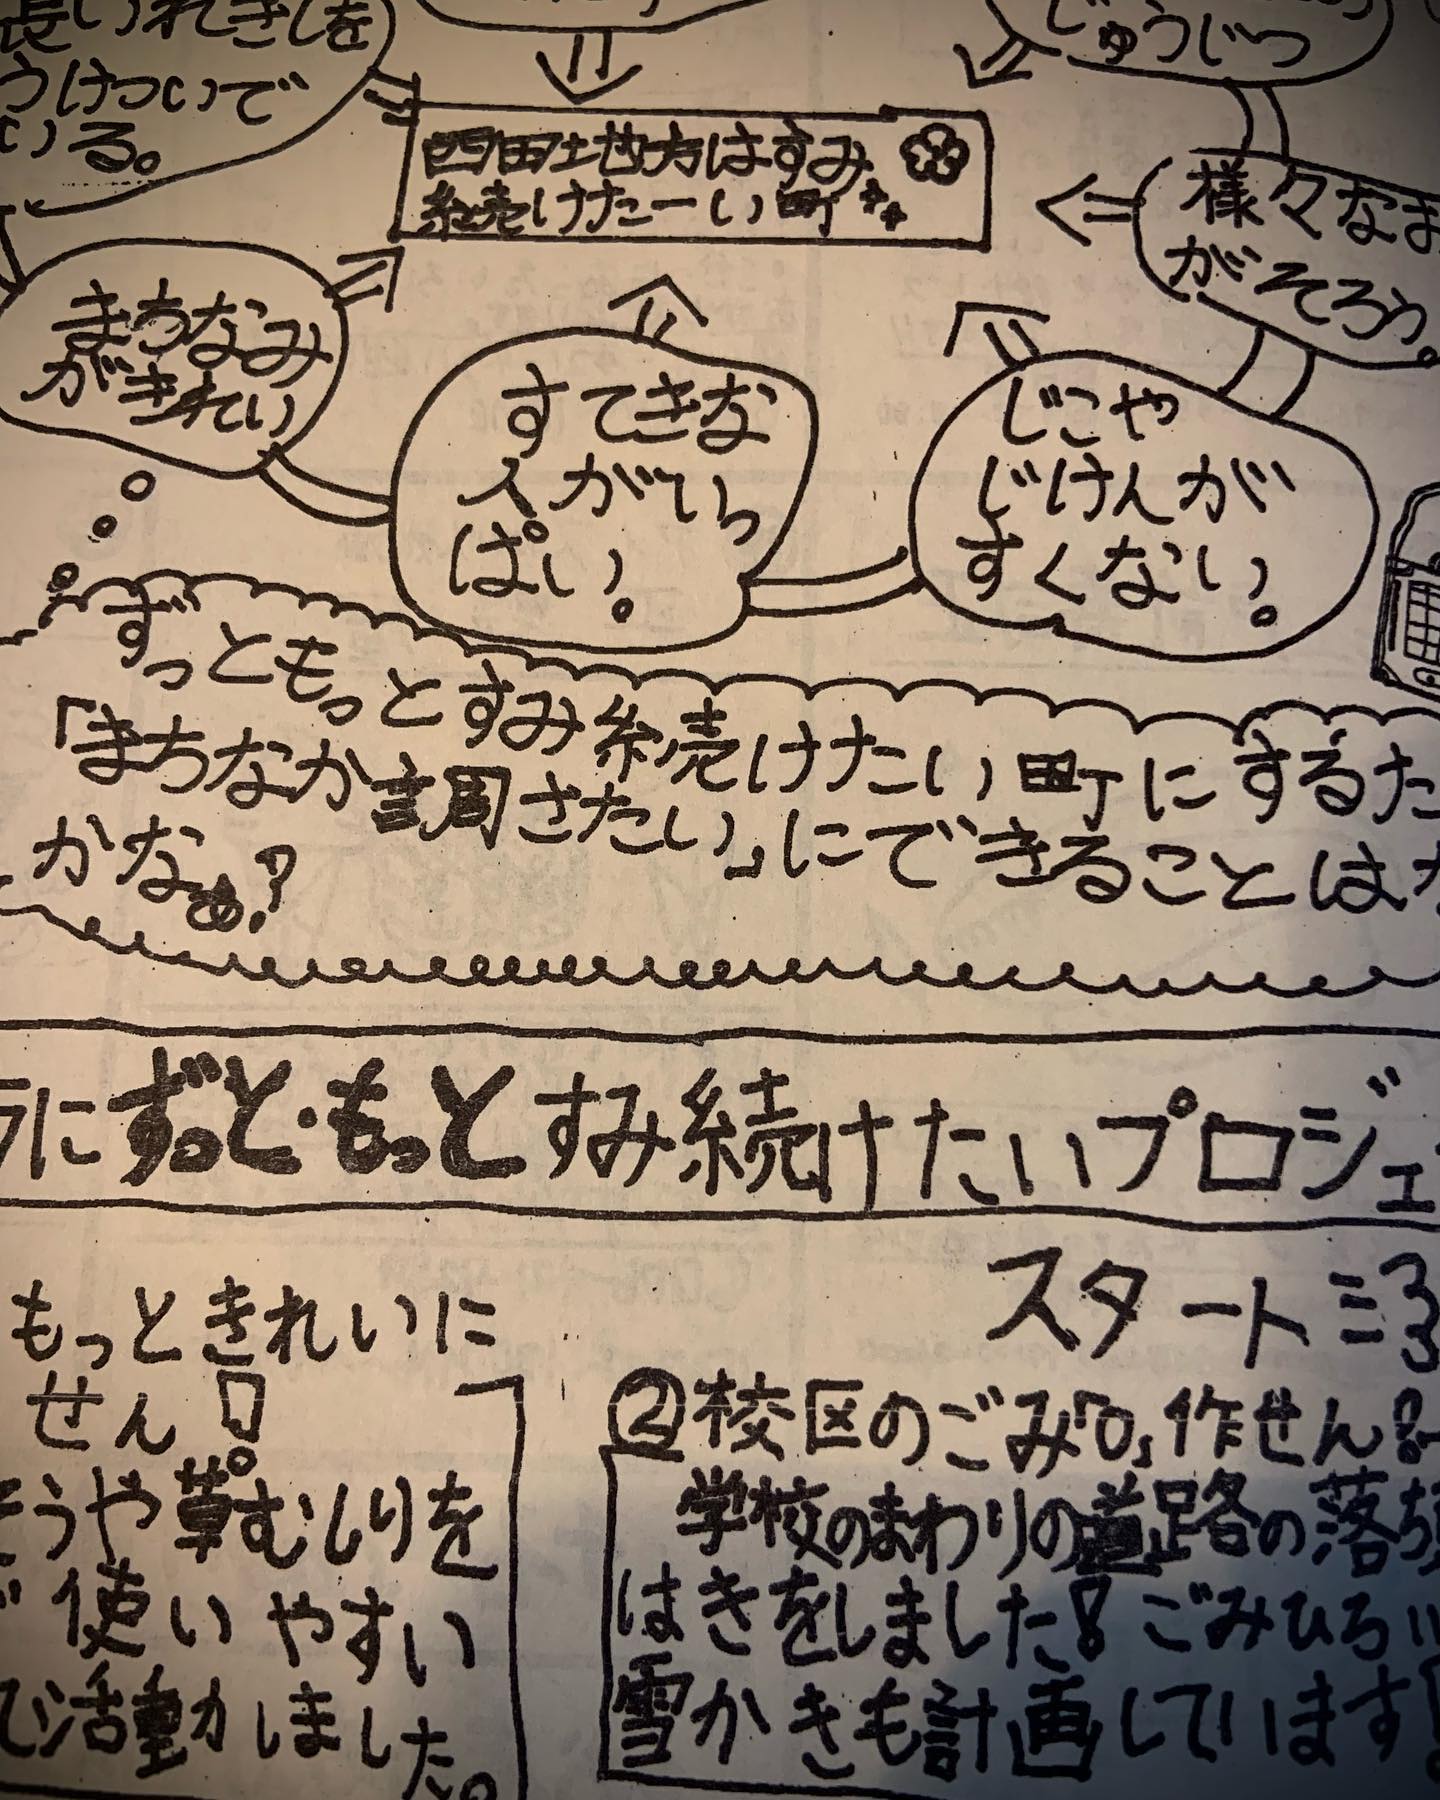 長いれきしを
うけついで
いる。
じゅうじつ
四田土地方はすみ
続けたーい町
様々な
がそろう。
まちなみ
がきれい
すてきな
人がいっ
ぱい。
じこや
じけんが
すくない。
ずっともっとすみ続けたい町にするた
「まちなか調さたい」にできることは
かなぁ?
にずっと・もっとすみ続けたいプロジェ
スタート
もっときれいに
せん!
そうや草むしりを
使いやすい
活動しました。
②校区のごみ「0」作せん!
学校のまわりの道路の落ち
はきをしました!ごみひろい
雪かきも計画しています!